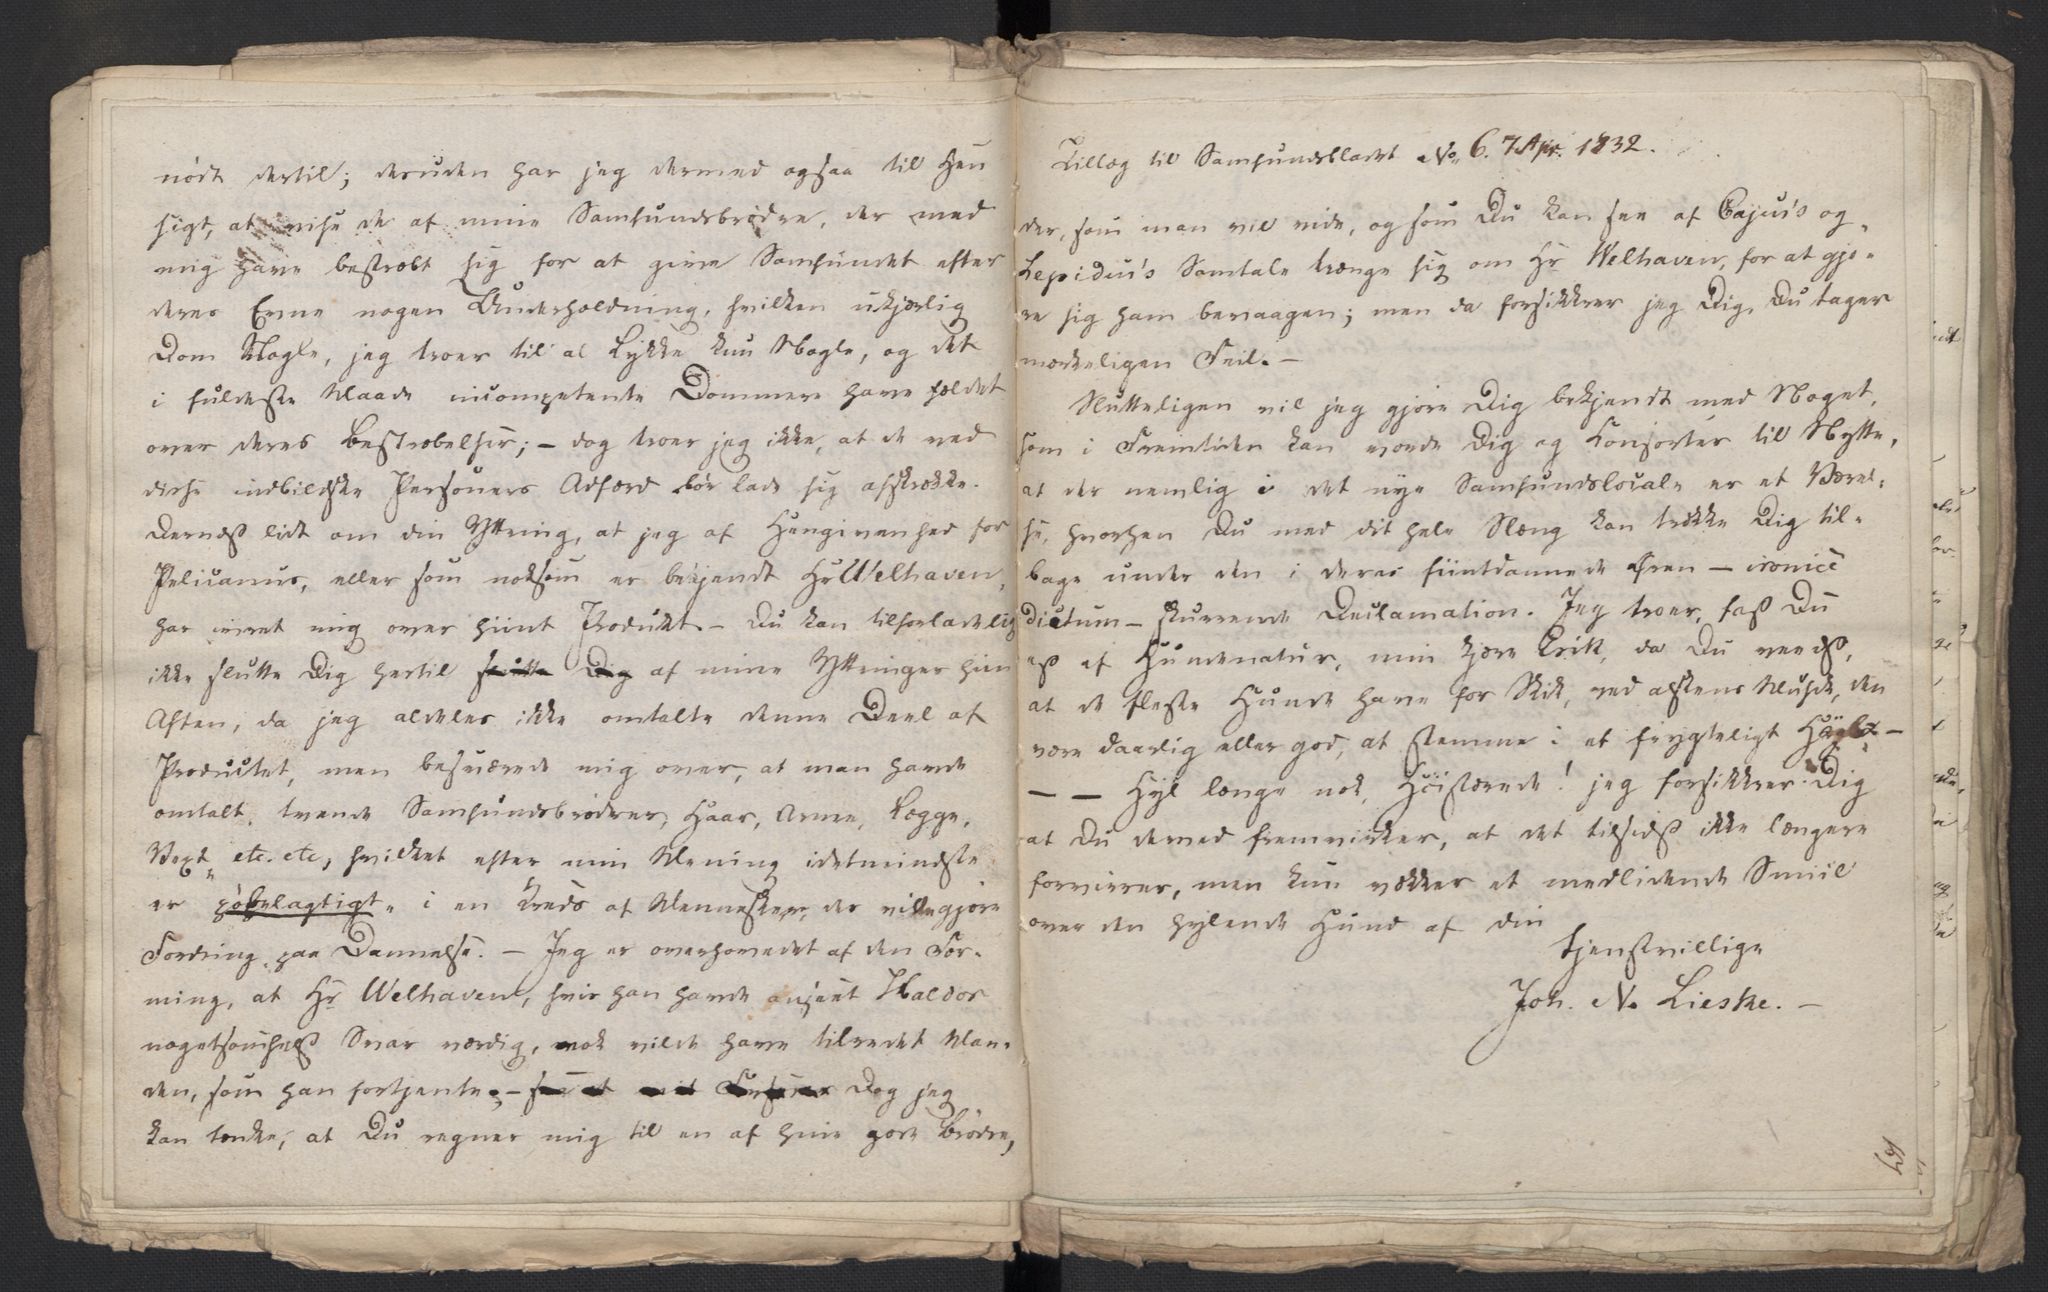 nødt dertil; desuden har jeg dermed ogsaa til Hen
sigt, at vise de af mine Samfundsbrødre, der med
mig have bestræbt sig for at give Samfundet efter
deres Evne nogen Underholdning, hvilken ukjærlig
Dom Nogle, jeg troer til al Lykke kun Nogle, og det
i fuldeste Maade incompetente Dommere have fældet
over deres Bestræbelser; – dog troer jeg ikke, at de ved
disse indbildske Personers Adfærd bør lade sig afskrække.
Dernæst lidt om din Yttring, at jeg af Hengivenhed for
Pelicanus, eller som noksom er bekjendt Hr Welhaven,
har ivret mig over hiint Produkt – Du kan tilforladelig
ikke slutte Dig hertil slutte Dig af mine Yttringer hiin
Aften, da jeg aldeles ikke omtalte denne Deel af
Productet, men besværede mig over, at man havde
omtalt, tvende Samfundsbrødres, Haar, Arme, Lægge,
Vext etc. etc, hvilket efter min Mening idetmindste
er pöbelagtigt i en Kreds af Mennesker, der ville gjøre
Fordring paa Dannelse. – Jeg er overhovedet af den For-
ming, at Hr Welhaven, hvis han havde anseet Haldor
nogetsomhelst Svar værdig, nok vilde have tilredet Man-
den, som han fortjente; – Dog jeg
kan tænke, at Du regner mig til en af hine gode Brødre,
Tillæg til Samfundsbladet No 6. 7 Apr. 1832.
der, som man vil vide, og som Du kan see af Cajus's og
Lepidus's Samtale trænge sig om Hr Welhaven, for at gjø-
re sig ham bevaagen; men da forsikkrer jeg Dig, Du tager
mærkeligen Feil. –
Slutteligen vil jeg gjøre Dig bekjendt med Noget,
som i Fremtiden kan vorde Dig og Consorter til Nytte,
at der nemlig i det nye Samfundslocale er et Værel-
se, hvorhen Du med dit hele Slæng kan trække Dig til-
bage under den i deres fiintdannede Øren – ironicè
dictum – skurrende Declamation. Jeg troer, fast Du
est af Hundenatur, min kjære Erik, da Du veedst,
at de fleste Hunde have for Skik, ved alskens Musik, den
være daarlig eller god, at stemme i et frygteligt Hyl –
– – Hyl længe nok, Høistærede! jeg forsikkrer Dig
at Du derved fremvirker, at det tilsidst ikke længere
forvirrer, men kun vækker et medlidende Smiil
over den hylende Hund af din
tjenstvillige
Joh. N. Lieske. –